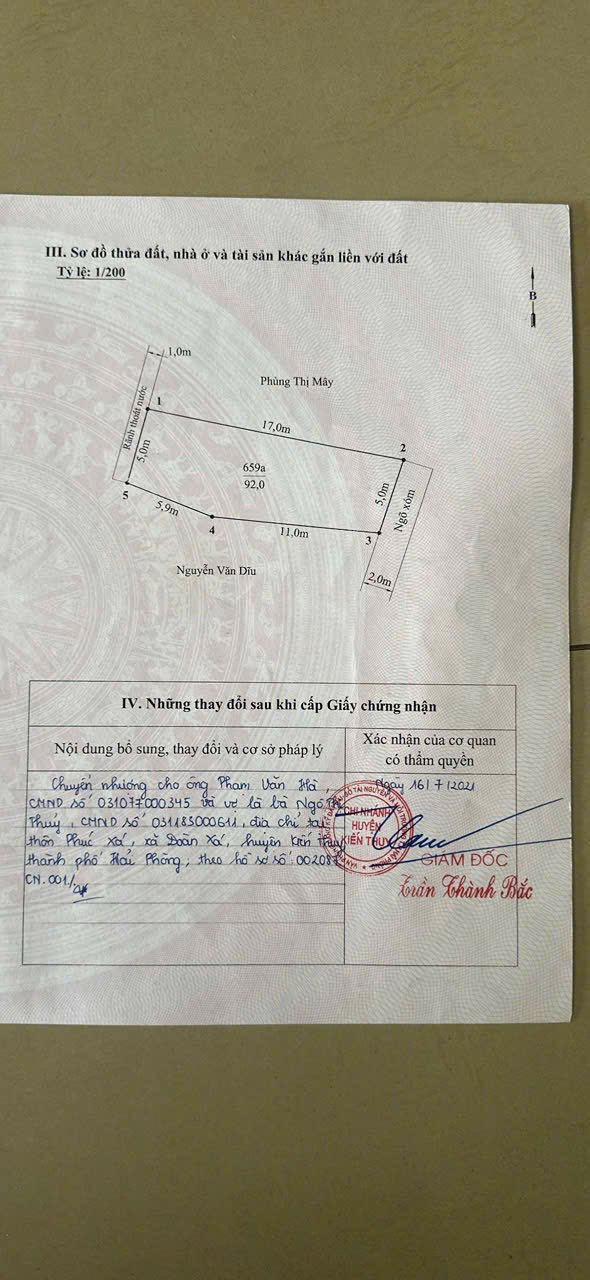 III. Sơ đồ thửa đất, nhà ở và tài sản khác gắn liền với đất
Tỷ lệ: 1/200
B
1,0m
Phùng Thị Mây
Rãnh thoát nước
1
17,0m
2
5,0m
659a
92,0
5,0m
Ngõ xóm
5
5,9m
4
11,0m
3
2,0m
Nguyễn Văn Dĩu
IV. Những thay đổi sau khi cấp Giấy chứng nhận
Nội dung bổ sung, thay đổi và cơ sở pháp lý
Xác nhận của cơ quan
có thẩm quyền
Chuyển nhượng cho ông Phạm Văn Hà,
CMND số 031077000345 và vợ là bà Ngô Thị
Thuỷ, CMND số 031183000611, địa chỉ tại
thôn Phúc Xá, xã Đoàn Xá, huyện Kiến Thuỵ
thành phố Hải Phòng, theo hồ sơ số 002087.
CN.001./
Ngày 16/7/2021
CHI NHÁNH
HUYỆN
KIẾN THUỴ
GIÁM ĐỐC
Trần Thành Bắc